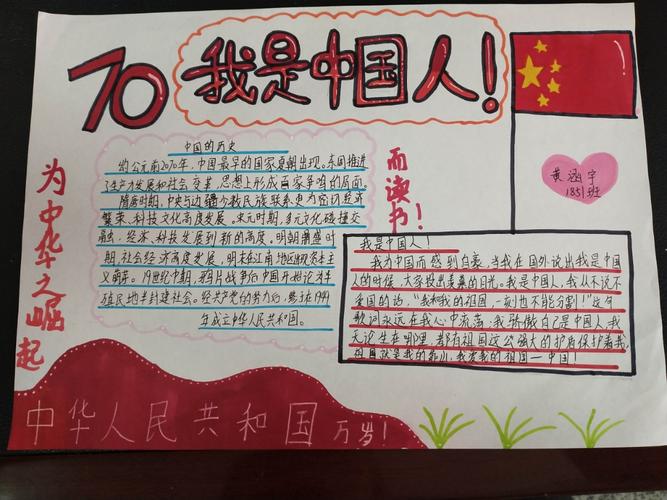 70 我是中国人!
为中华之崛起
而读书!
黄涵宇
1851班
中国的历史
约公元前2070年，中国最早的国家夏朝出现。东周推进
了生产力发展和社会变革，思想上形成百家争鸣的局面。
隋唐时期，中央与边疆少数民族联系更为密切，经济
繁荣、科技文化高度发展。宋元时期，多元文化碰撞交
融，经济、科技发展到新的高度。明朝鼎盛时
期，社会经济高度发展，明末在江南地区出现资本主
义萌芽。19世纪中期，鸦片战争后中国开始沦为半
殖民地半封建社会。经共产党的努力后，终于在1949
年成立中华人民共和国。
我是中国人!
我为中国而感到自豪，当我在国外说出我是中国
人的时候，大家投出羡慕的目光。我是中国人，我从不说不
爱国的话，"我和我的祖国，一刻也不能分割!"这句
歌词永远在我心中流荡，我骄傲自己是中国人，我
无论生在哪里，都有祖国这么强大的护盾保护着我，
祖国就是我的靠山，我爱我的祖国——中国!
中华人民共和国万岁!